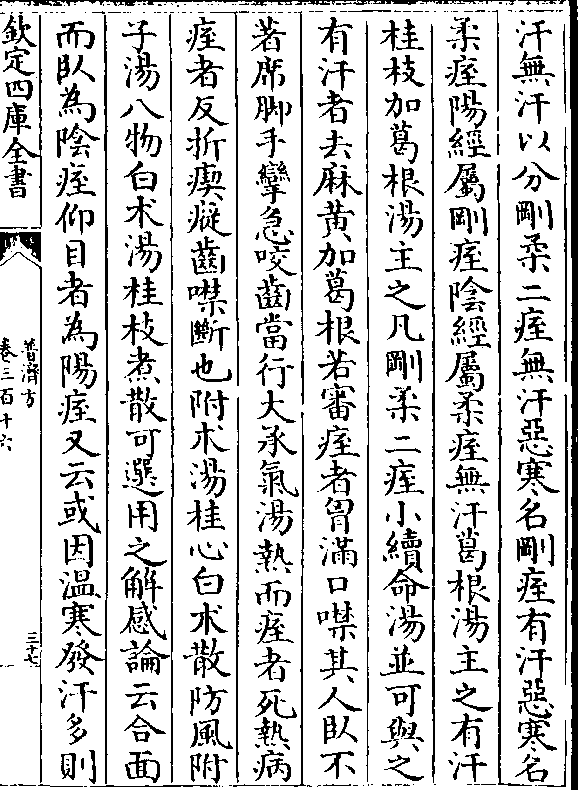 汗無汗以分剛柔二痓無汗惡寒名剛痓有汗惡寒名
柔痓陽經屬剛痓陰經屬柔痓無汗葛根湯主之有汗
桂枝加葛根湯主之凡剛柔二痓小續命湯並可與之
有汗者去麻黄加葛根若審痓者胷滿口噤其人臥不
著席脚手攣急咬齒當行大承氣湯熱而痓者死熱病
痓者反折瘈瘲齒噤斷也附术湯桂心白术散防風附
子湯八物白术湯桂枝煮散可選用之解感論云合面
而臥為陰痓仰目者為陽痓又云或因溫寒發汗多則
欽定四庫全書
普濟方
卷三百十六
三十七